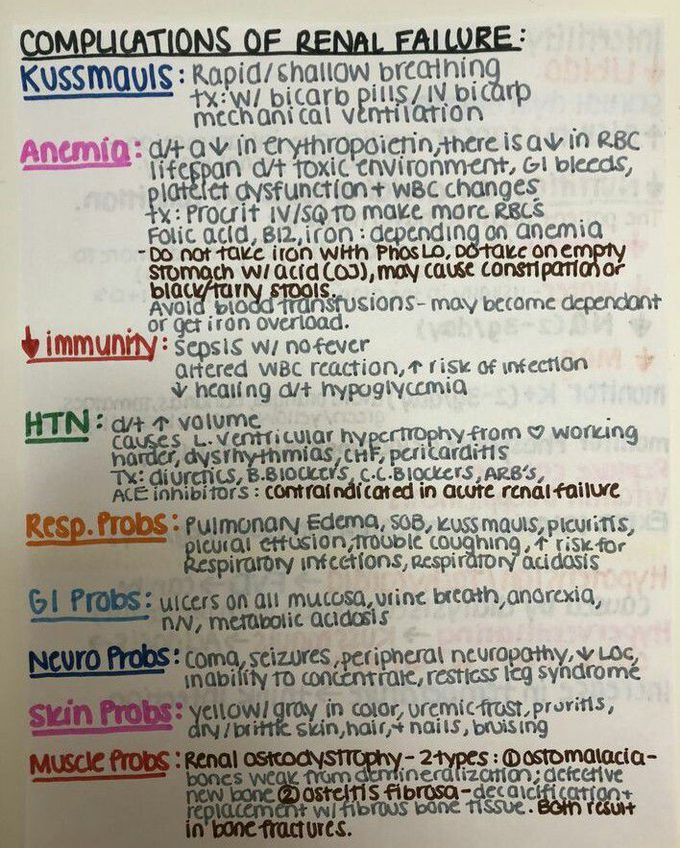 COMPLICATIONS OF RENAL FAILURE:
Kussmauls: Rapid/shallow breathing
tx: w/ bicarb pills/IV bicarp
mechanical ventilation
Anemia: d/t a ↓ in erythropoietin, there is a ↓ in RBC
lifespan d/t toxic environment, GI bleeds,
platelet dysfunction + WBC changes
tx: Procrit IV/SQ to make more RBCs
Folic acid, B12, iron: depending on anemia
- Do not take iron with PhosLo, Do take on empty
stomach w/ acid (OJ), may cause constipation or
black/tarry stools.
Avoid blood transfusions - may become dependant
or get iron overload.
↓ immunity: sepsis w/ no fever
altered WBC reaction, ↑ risk of infection
↓ healing d/t hypoglycemia
HTN: d/t ↑ volume
causes L. ventricular hypertrophy from ♡ working
harder, dysrhythmias, CHF, pericarditis
Tx: diuretics, B.Blockers, C.C.Blockers, ARB's,
ACE inhibitors: contraindicated in acute renal failure
Resp. Probs: Pulmonary Edema, SOB, kussmauls, pleuritis,
pleural effusion, trouble coughing, ↑ risk for
Respiratory infections, Respiratory acidosis
GI Probs: ulcers on all mucosa, urine breath, anorexia,
n/v, metabolic acidosis
Neuro Probs: Coma, seizures, peripheral neuropathy, ↓ LOC,
inability to concentrate, restless leg syndrome
Skin Probs: yellow/gray in color, uremic frost, pruritis,
dry/brittle skin, hair, + nails, bruising
Muscle Probs: Renal osteodystrophy - 2 types: ① ostomalacia -
bones weak from demineralization; defective
new bone ② osteitis fibrosa - decalcification +
replacement w/ fibrous bone tissue. Both result
in bone fractures.